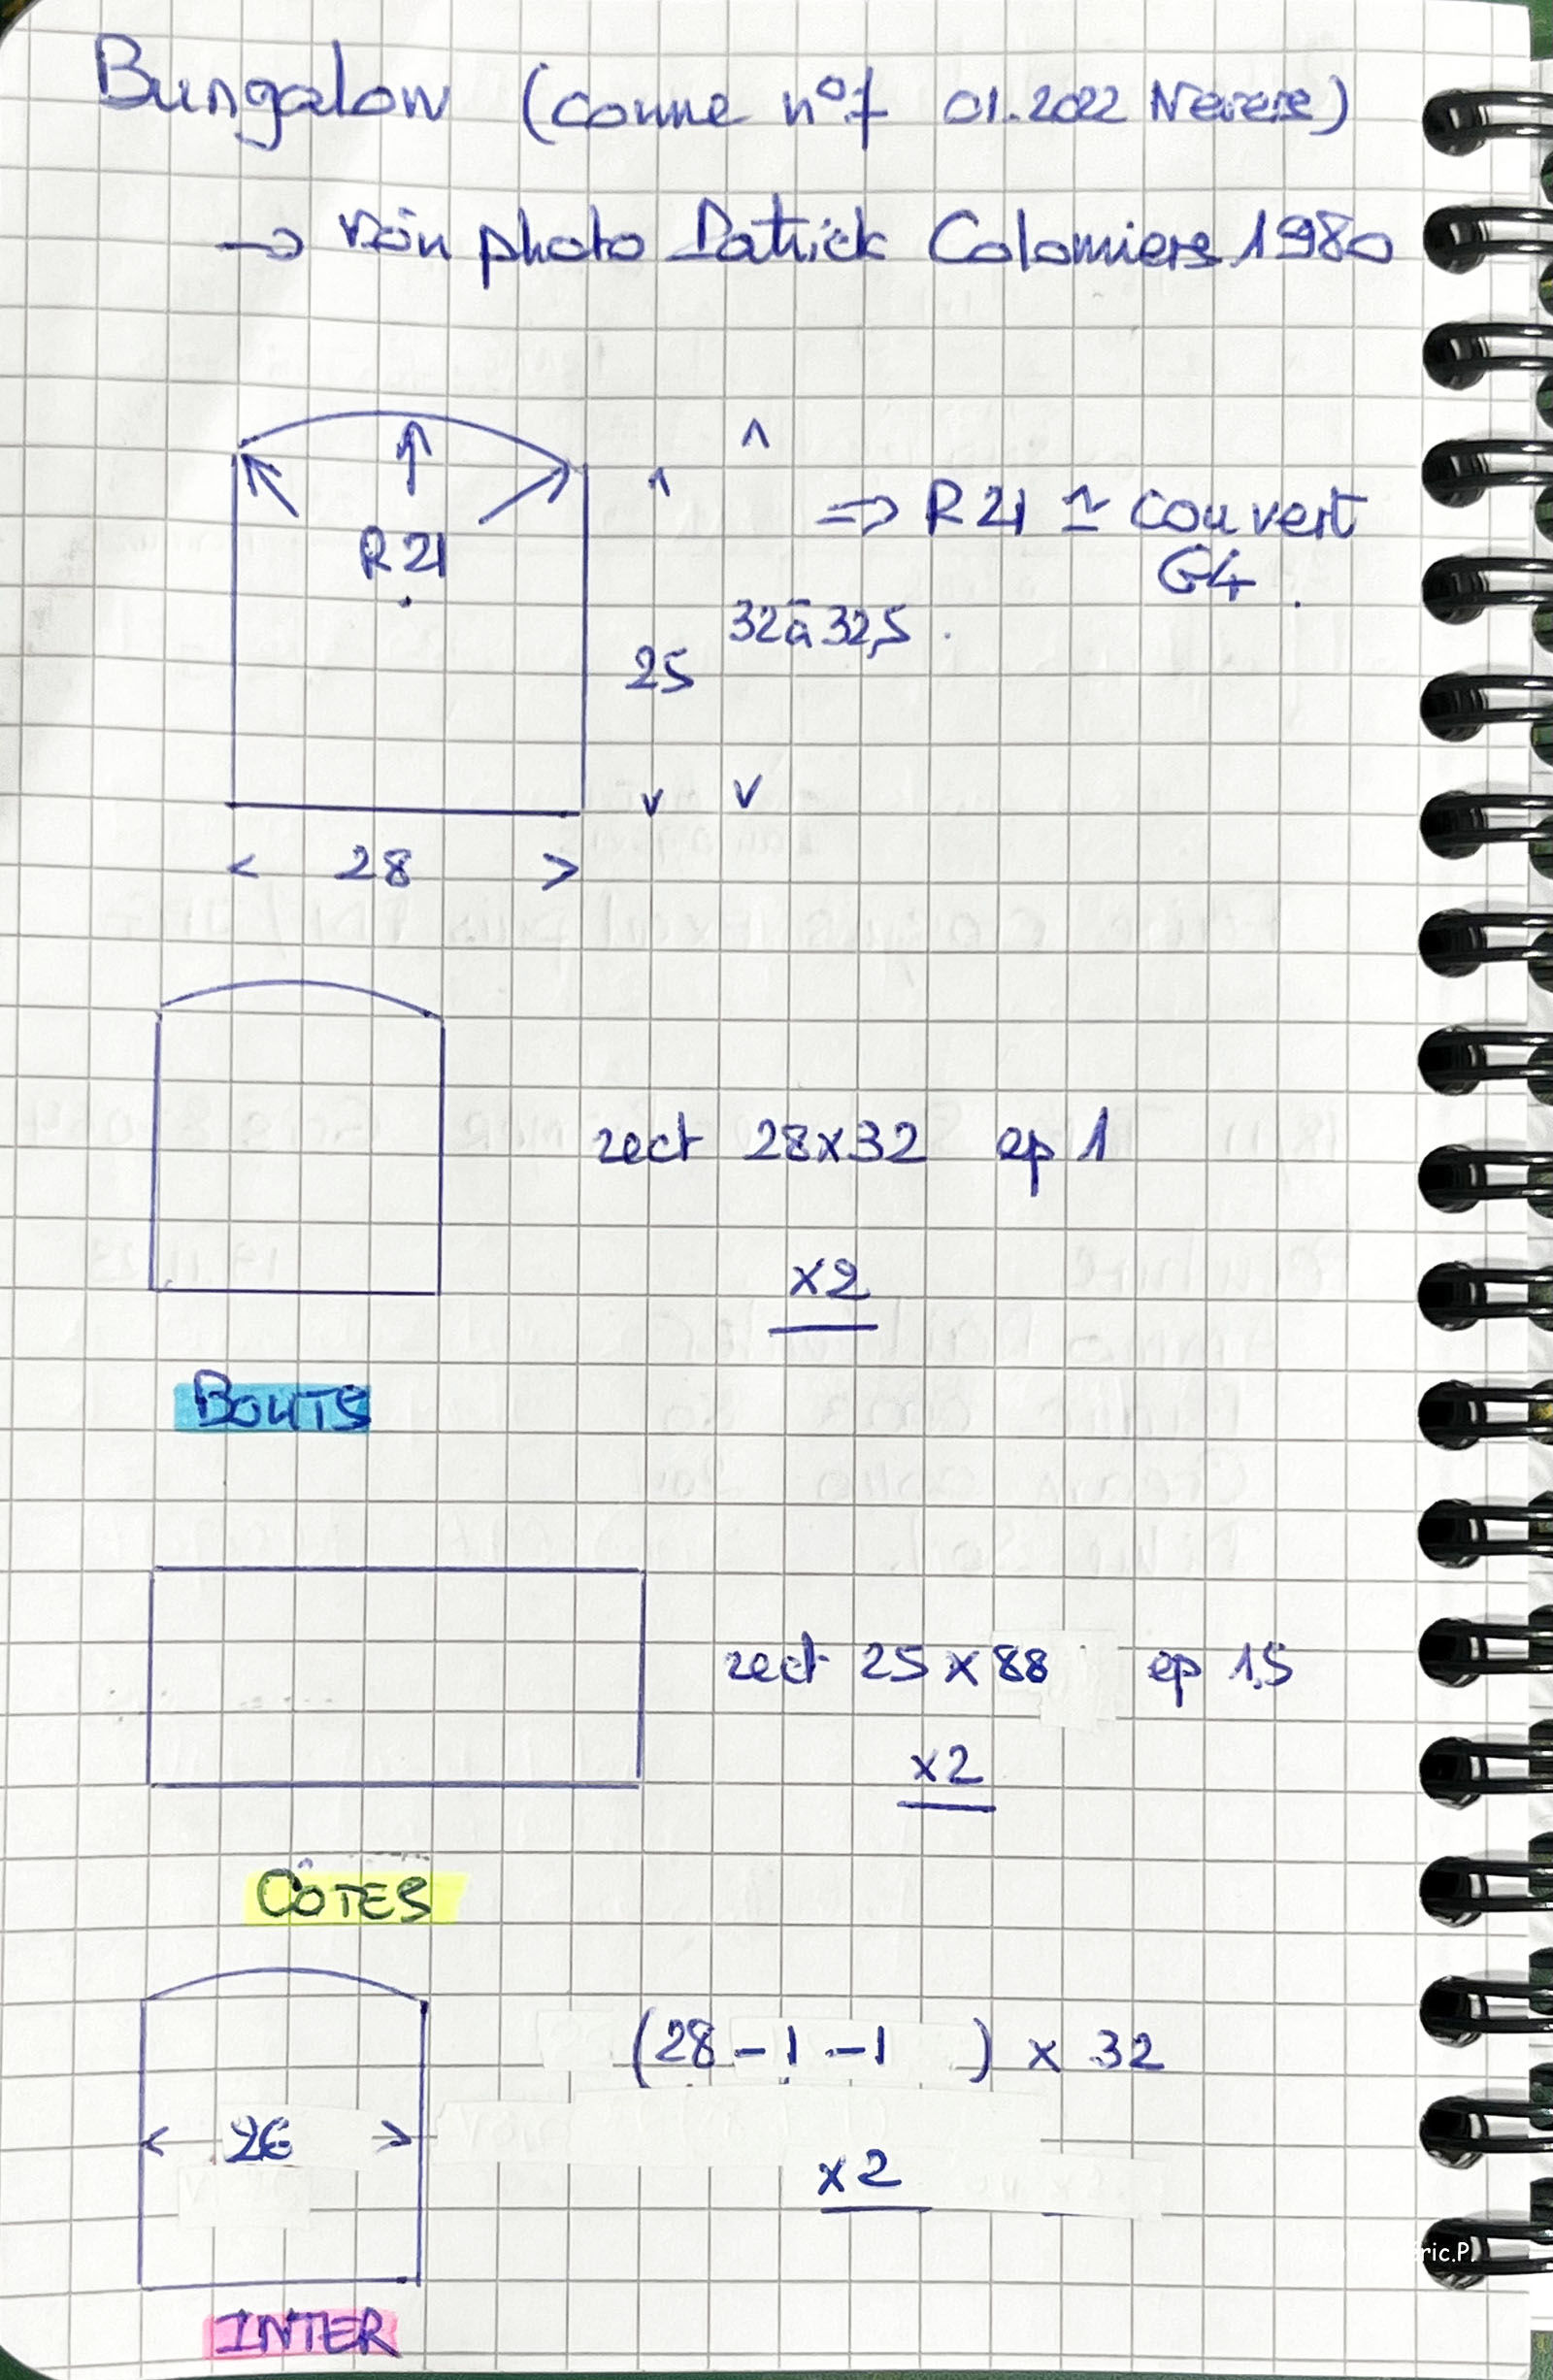 Bungalow (comme n°1 01.2022 Nevers)
→ voir photo Patrick Colomiers 1980
R 21
⇒ R 21 ≃ couvert
G4
32 à 32,5
25
< 28 >
rect 28x32 ep 1
x2
BOUTS
rect 25 x 88 ep 1,5
x2
CÔTES
(28 - 1 - 1 ) x 32
< 26 >
x2
ric.P.
INTER